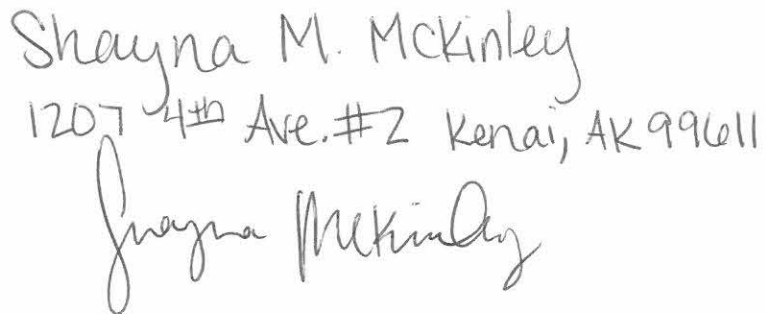 Shayna M. McKinley
1207 4th Ave. #2 Kenai, AK 99611
Shayna McKinley